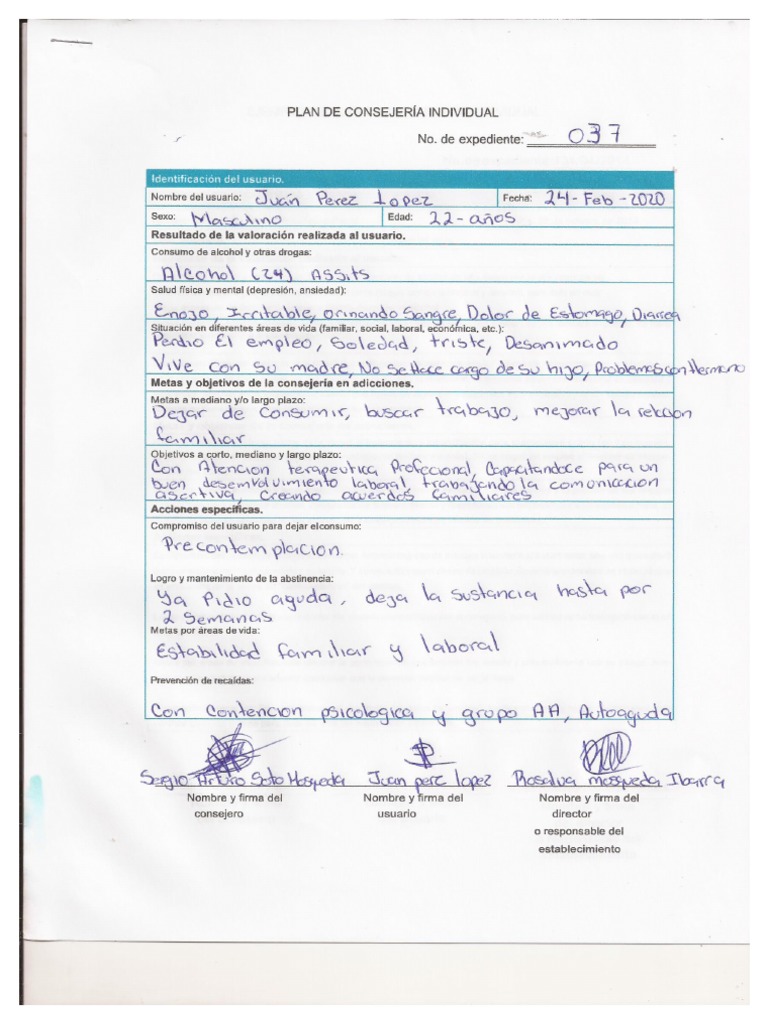 PLAN DE CONSEJERÍA INDIVIDUAL
No. de expediente: 037
Identificación del usuario.
Nombre del usuario: Juan Perez Lopez Fecha: 24-Feb-2020
Sexo: Masculino Edad: 22-años
Resultado de la valoración realizada al usuario.
Consumo de alcohol y otras drogas:
Alcohol (24) Assits
Salud física y mental (depresión, ansiedad):
Enojo, Irritable, orinando Sangre, Dolor de Estomago, Diarrea
Situación en diferentes áreas de vida (familiar, social, laboral, económica, etc.):
Perdio El empleo, Soledad, triste, Desanimado
Vive con su madre, No se Hace cargo de su hijo, Problemas con Hermano
Metas y objetivos de la consejería en adicciones.
Metas a mediano y/o largo plazo:
Dejar de consumir, buscar trabajo, mejorar la relccion
familiar
Objetivos a corto, mediano y largo plazo:
Con Atencion terapeutica Profecional, Capacitandoce para un
buen desemvolvimiento laboral, trabajando la comunicacion
asertiva, Creando acuerdos familiares
Acciones específicas.
Compromiso del usuario para dejar elconsumo:
Precontemplacion.
Logro y mantenimiento de la abstinencia:
Ya Pidio aguda, deja la sustancia hasta por
2 semanas
Metas por áreas de vida:
Estabilidad familiar y laboral
Prevención de recaídas:
Con Contencion psicologica y grupo AA, Autoaguda
Sergio Arturo Soto Mosqueda Juan perez lopez Rosalva mosqueda Ibarra
Nombre y firma del Nombre y firma del Nombre y firma del
consejero usuario director
o responsable del
establecimiento